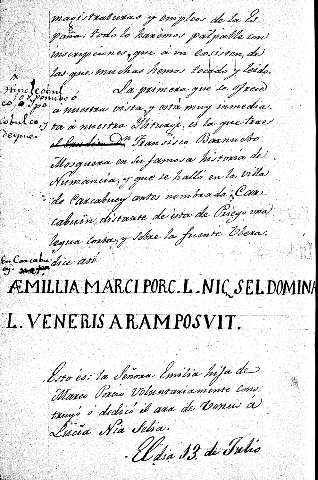 magistraturas y empleos de la Es
paña: todo lo harémos palpable con
inscripciones, que aun existen, de
las que muchas hemos tocado y leido.
La primera que se ofreció
a nuestra vista, y está muy inmedia
ta a nuestro Ythurgi, es la que trae
Dn. Francisco Barnuebo
Mosquera en su famosa historia de
Numancia, y que se halló en la villa
de Carcabuey antes nombrada Car
cabuin, distante de esta de Priego una
legua corta, y sobre la fuente Ubera.
dice asi
En Carcabu
ey
ÆMILLIA MARCI PORC. L. NIC. SEL DOMINA
L. VENERIS ARAM POSVIT.
Esto és: la Señora Emilia hija de
Marco Porcio Voluntariamente cons
truyó ó dedicó el ara de Venus á
Lucia Nia Selia.
El dia 13 de Julio